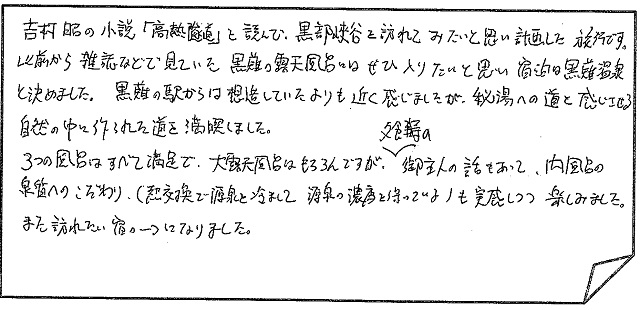 吉村昭の小説「高熱隧道」を読んで、黒部峡谷を訪れてみたいと思い計画した旅行です。
以前から雑誌などで見ていた黒薙の露天風呂にはぜひ入りたいと思い宿泊は黒薙温泉
と決めました。黒薙の駅からは想造していたよりも近く感じましたが、秘湯への道を感じる
自然の中に作られた道を満喫しました。
夕食時の
3つの風呂はすべて満足で、大露天風呂はもちろんですが、御主人の話もあって、内風呂の
泉質へのこだわり、(熱交換で源泉を冷まして源泉の濃度を保っている)も実感しつつ楽しみました。
また訪れたい宿の一つになりました。